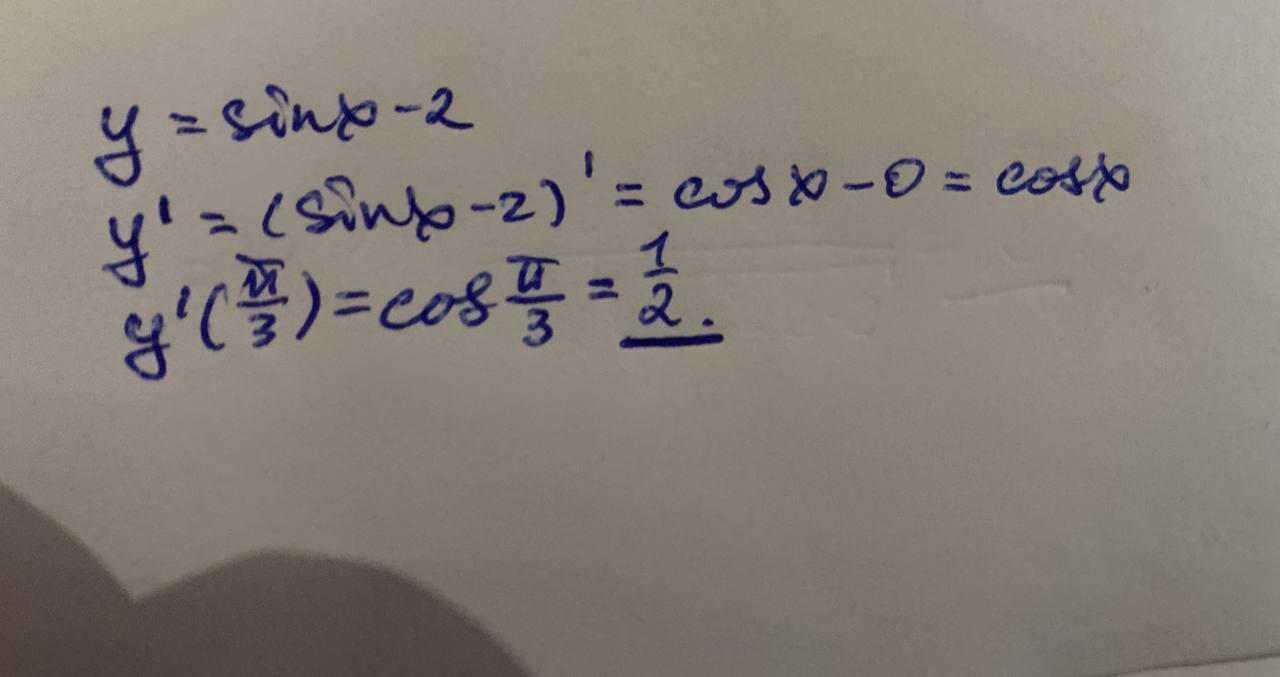 y = sinx - 2
y' = (sinx - 2)' = cosx - 0 = cosx
y'(π/3) = cos π/3 = 1/2.